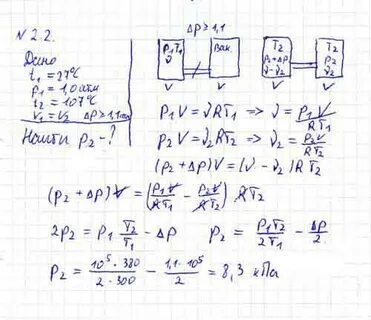 N 2.2.
Дано
t₁ = 27°C
P₁ = 1,0 атм
t₂ = 107°C
V₁ = V₂ ΔP ≥ 1,1 атм
Найти P₂ - ?
ΔP ≥ 1,1
P₁ T₁
ν
Вак.
T₂
P₂+ΔP
ν-ν₂
T₂
P₂
ν₂
V V V V
P₁V = νRT₁ => ν = P₁V / RT₁
P₂V = ν₂RT₂ => ν₂ = P₂V / RT₂
(P₂ + ΔP)V = (ν - ν₂)RT₂
(P₂ + ΔP)V = (P₁V / RT₁ - P₂V / RT₂) RT₂
2P₂ = P₁ T₂/T₁ - ΔP P₂ = P₁T₂ / 2T₁ - ΔP/2
P₂ = 10⁵ · 380 / 2 · 300 - 1,1 · 10⁵ / 2 = 8,3 кПа